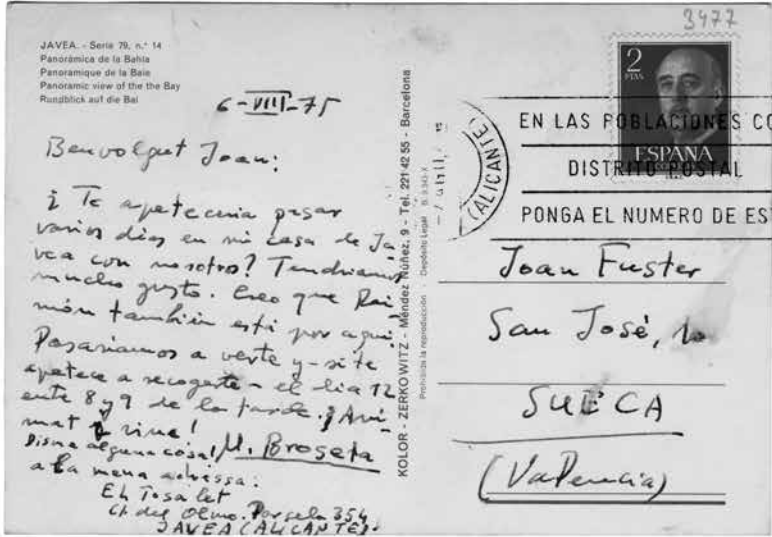 3477
JAVEA. - Serie 79, n.° 14
Panorámica de la Bahía
Panoramique de la Baie
Panoramic view of the the Bay
Rundblick auf die Bai
6-VIII-75
Benvolgut Joan:
¿Te apetecería pasar
varios días en mi casa de Ja-
vea con nosotros? Tendríamos
mucho gusto. Creo que Rai-
món también está por aquí.
Pasaríamos a verte y - si te
apetece a recogerte - el día 12
entre 8 y 9 de la tarde. ¡Aní-
mat y vine!
Disme alguna cosa! M. Broseta
a la meua adressa:
El Tosalet
C/ del Olmo. Parsela 354
JAVEA (ALICANTE).
KOLOR - ZERKOWITZ - Méndez Núñez, 9 - Tel. 221 42 55 - Barcelona
Prohibida la reproducción - Depósito Legal
2
PTAS
ESPAÑA
CORREOS
(ALICANTE)
EN LAS POBLACIONES CO
DISTRITO POSTAL
PONGA EL NUMERO DE ES
Joan Fuster
San José, 10
SUECA
(Valencia)